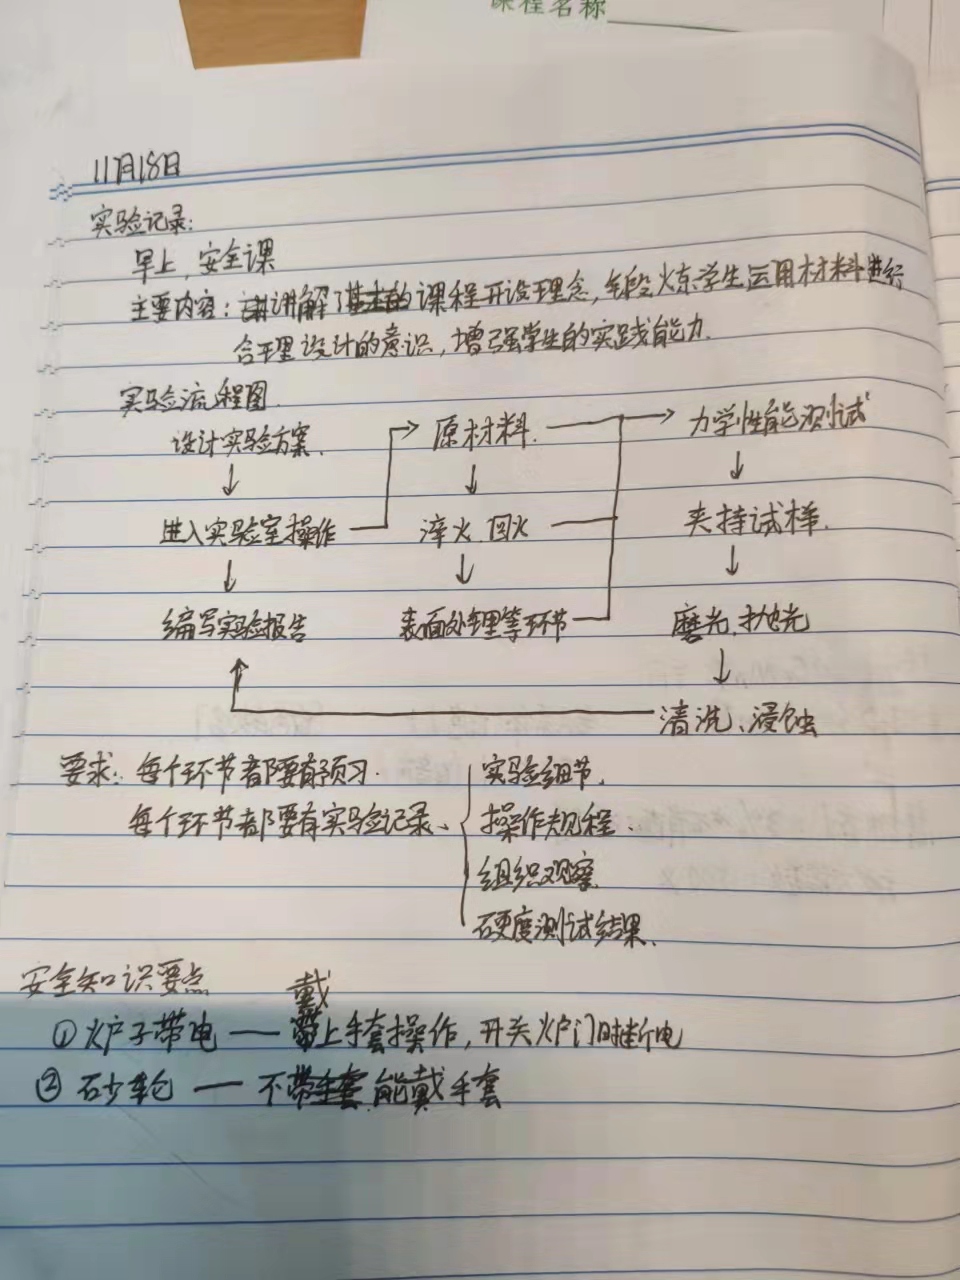 课程名称
11月18日
实验记录:
早上,安全课
主要内容:讲解了课程开设理念,锻炼学生运用材料进行
合理设计的意识,增强学生的实践能力.
实验流程图.
设计实验方案. → 原材料. → 力学性能测试
↓ ↓ ↓
进入实验室操作 淬火.回火 夹持试样.
↓ ↓ ↓
编写实验报告 表面处理等环节 磨光.抛光
↓
清洗、浸蚀
要求:每个环节都要有预习.
每个环节都要有实验记录、
实验细节.
操作规程.
组织观察.
硬度测试结果.
安全知识要点
①炉子带电——戴上手套操作,开关炉门时断电
②砂轮——不能戴手套